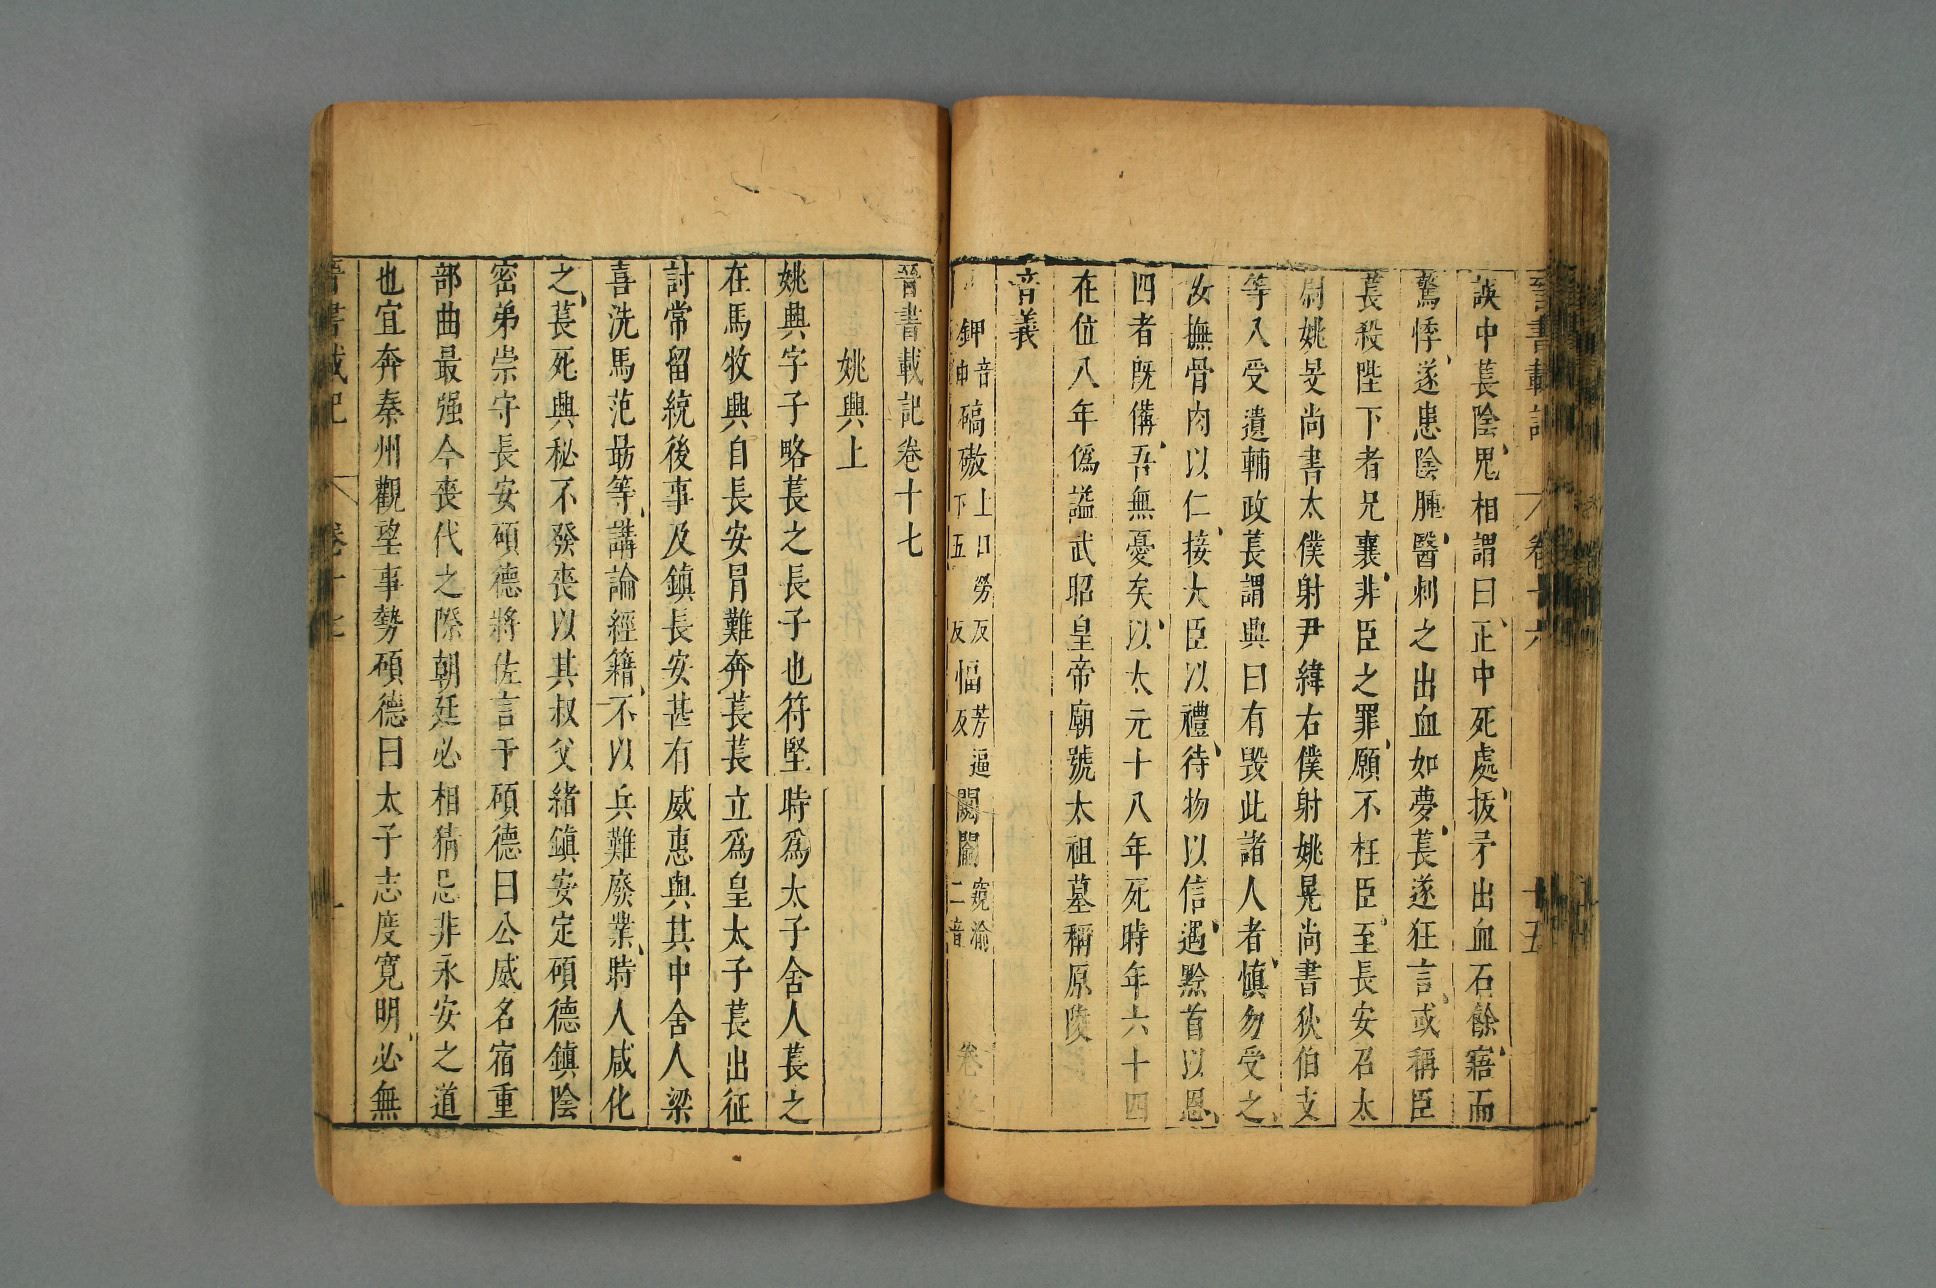 晉書載記 卷十六 十五
誤中萇陰鬼相謂曰正中死處拔矛出血石餘寤而
驚悸遂患陰腫醫刺之出血如夢萇遂狂言或稱臣
萇殺陛下者兄襄非臣之罪願不枉臣至長安召太
尉姚旻尚書太僕射尹緯右僕射姚晃尚書狄伯支
等入受遺輔政萇謂興曰有毀此諸人者愼勿受之
汝撫骨肉以仁接大臣以禮待物以信遇黔首以恩
四者旣備吾無憂矣以太元十八年死時年六十四
在位八年僞謚武昭皇帝廟號太祖墓稱原陵
音義
鉀音甲 碻磝上口勞反下五 反 愊芳逼反 闚闟窺渝二音 卷
晉書載記卷十七
姚興上
姚興字子略萇之長子也符堅時爲太子舍人萇之
在馬牧興自長安冐難奔萇萇立爲皇太子萇出征
討常留統後事及鎮長安甚有威惠與其中舍人梁
喜洗馬范勗等講論經籍不以兵難廢業時人咸化
之萇死興秘不發喪以其叔父緒鎮安定碩德鎮陰
密弟崇守長安碩德將佐言于碩德曰公威名宿重
部曲最强今喪代之際朝廷必相猜忌非永安之道
也宜奔秦州觀望事勢碩德曰太子志度寬明必無
晉書載記 卷十七 一